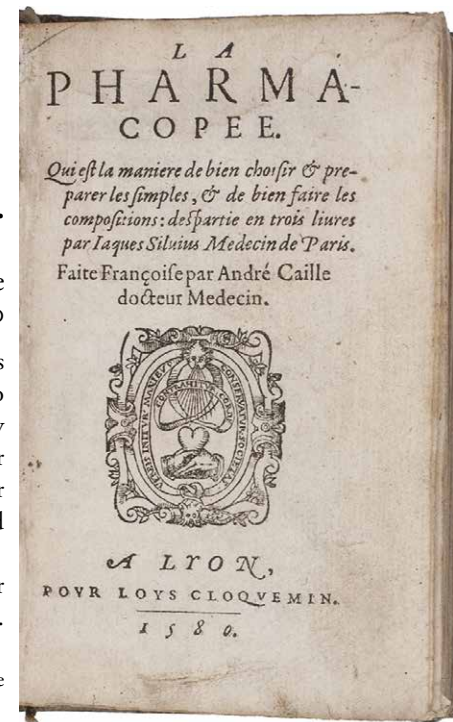 LA
PHARMA-
COPEE.
Qui eſt la maniere de bien choiſir & pre-
parer les ſimples, & de bien faire les
compoſitions: deſpartie en trois liures
par Iaques Siluius Medecin de Paris.
Faite Françoiſe par André Caille
docteur Medecin.
A LYON,
POVR LOYS CLOQVEMIN.
1580.